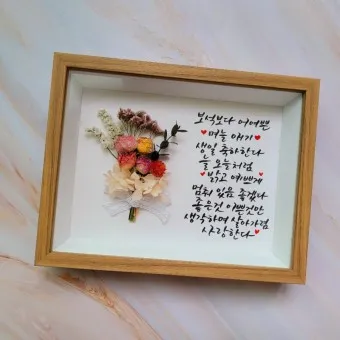 보석보다 어여쁜
며늘 애기
생일 축하한다
늘 오늘처럼
밝고 예쁘게
멈춰 있음 좋겠다
좋은것 이쁜것만
생각하며 살아가렴
사랑한다